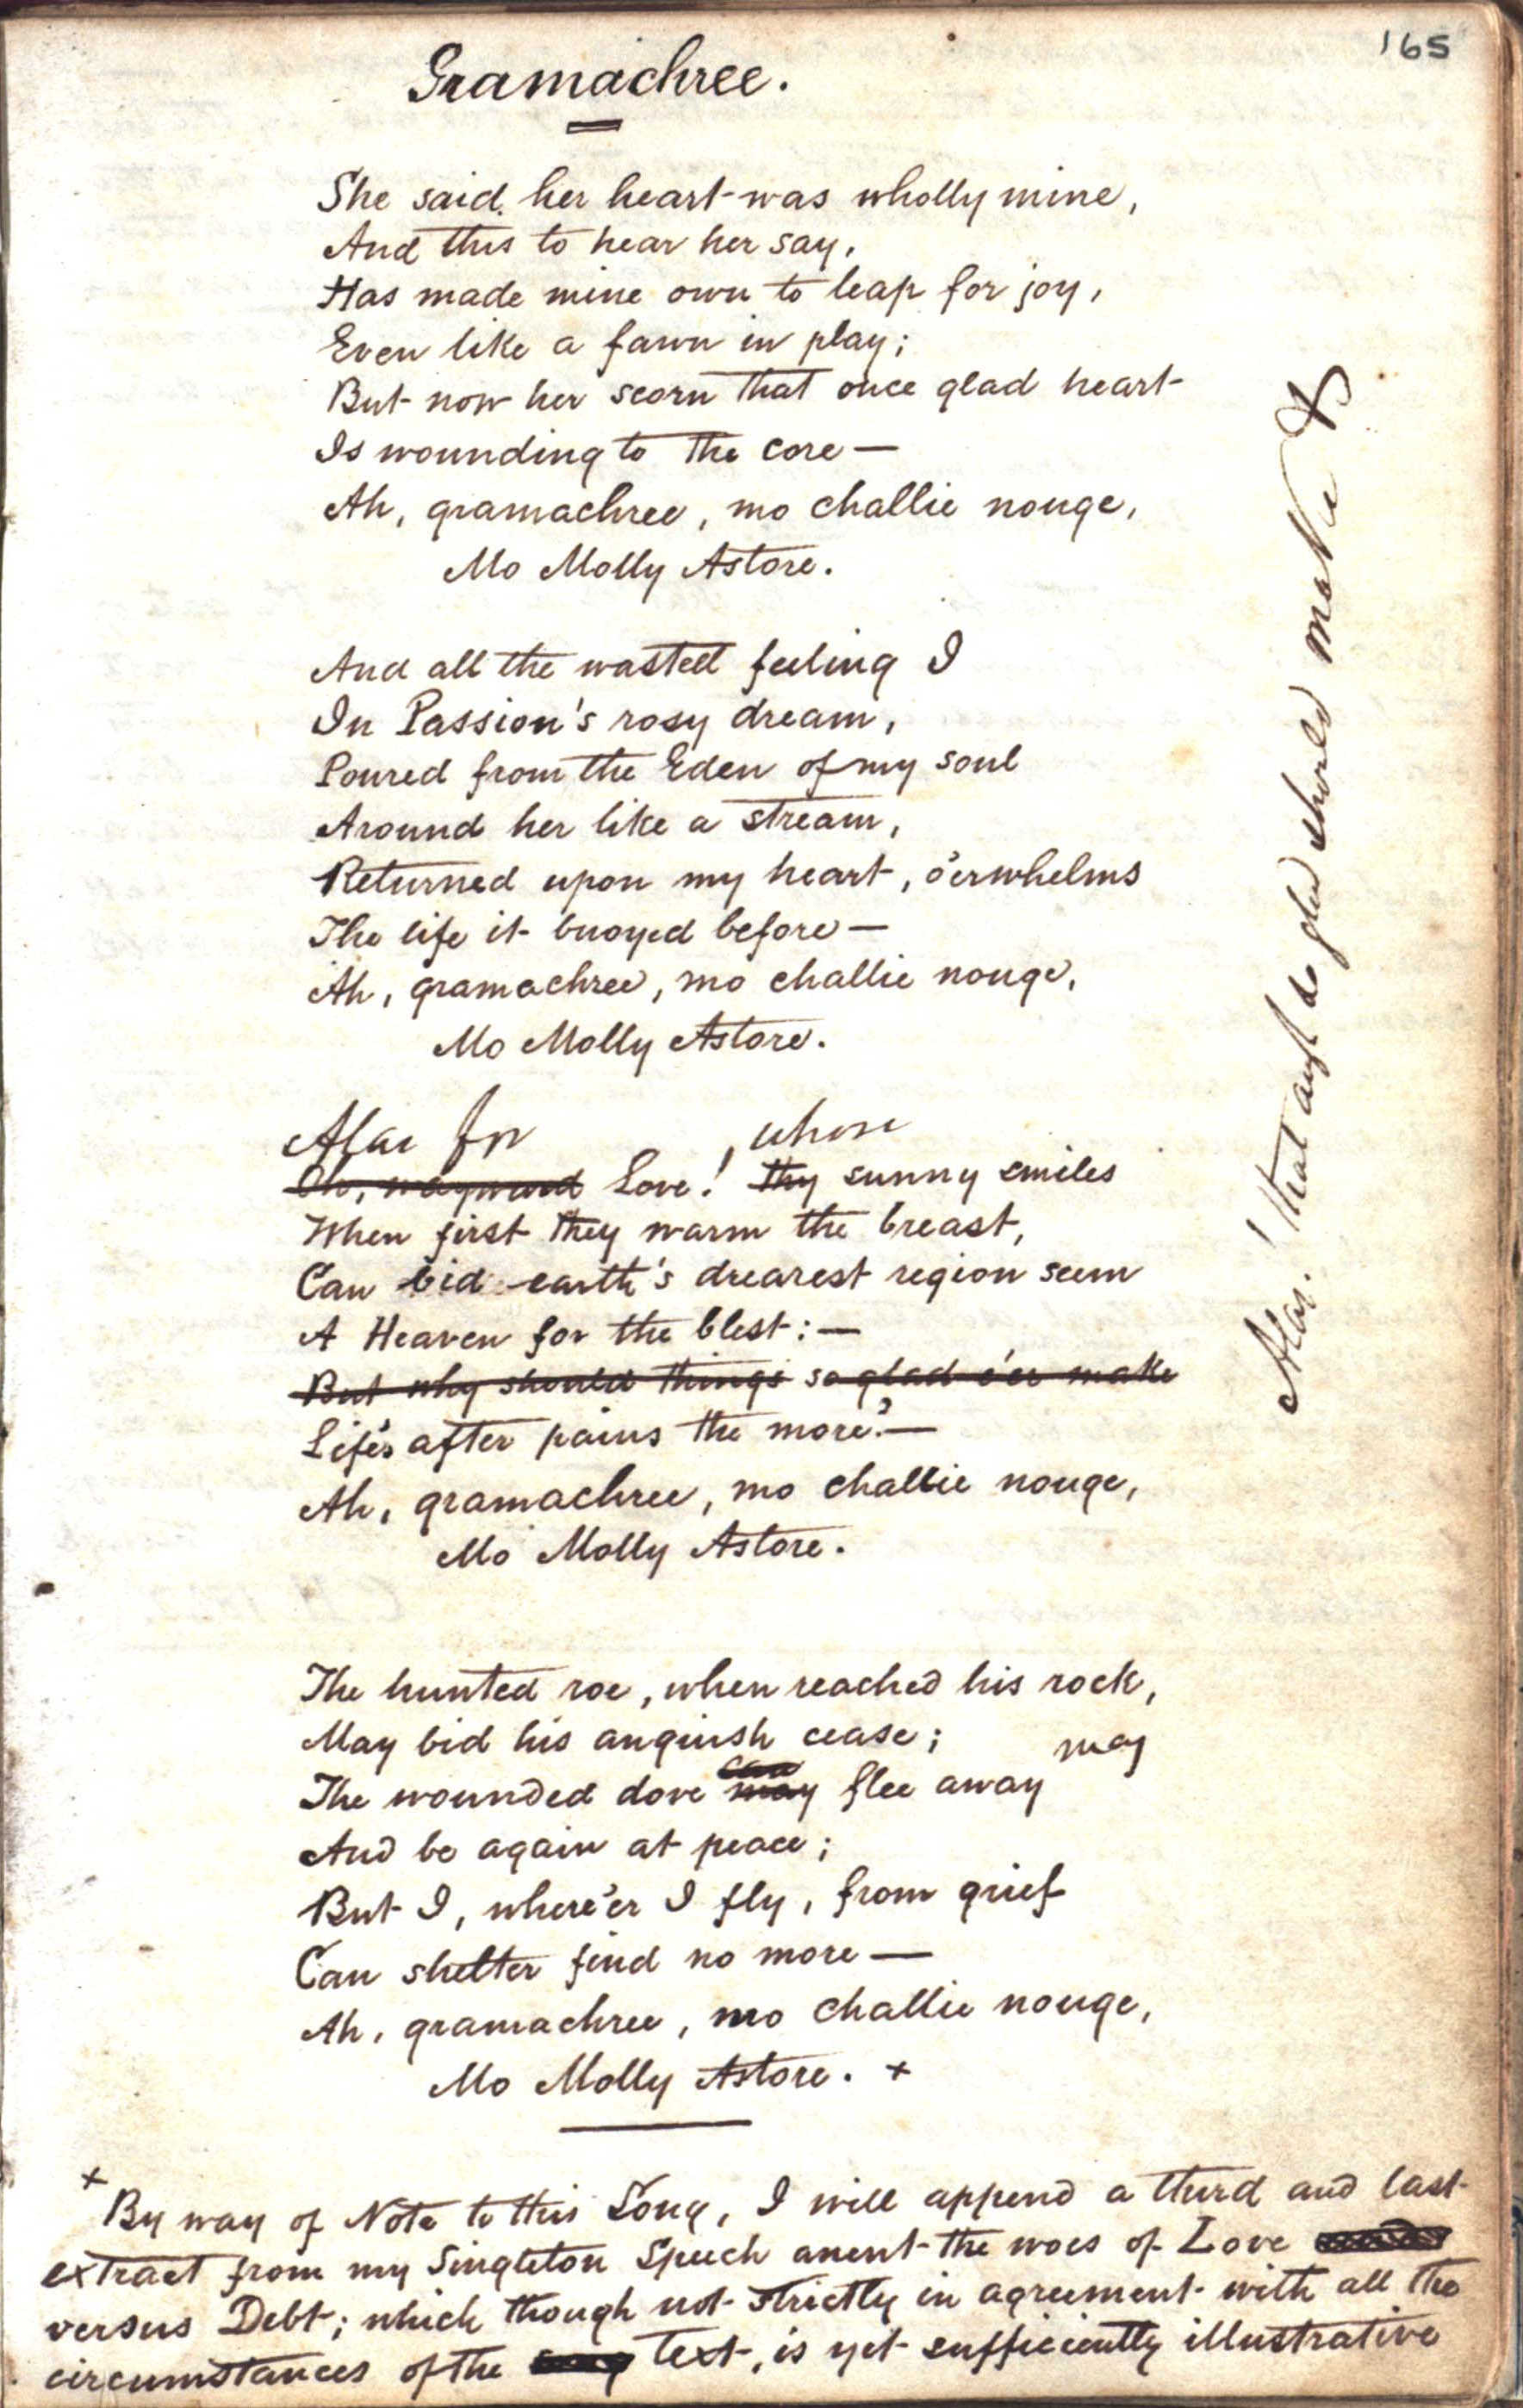 165
Gramachree.
She said her heart was wholly mine,
And this to hear her say,
Has made mine own to leap for joy,
Even like a fawn in play;
But now her scorn that once glad heart
Is wounding to the core—
Ah, gramachree, mo challie nouge,
Mo Molly Astore.
And all the wasted feeling I
In Passion's rosy dream,
Poured from the Eden of my soul
Around her like a stream,
Returned upon my heart, o'erwhelms
The life it buoyed before—
Ah, gramachree, mo challie nouge,
Mo Molly Astore.
Alas for , whose
Oh, wayward Love! thy sunny smiles
When first they warm the breast,
Can bid earth's drearest region seem
A Heaven for the blest:—
But why should things so glad e'er make
Life's after pains the more?—
Ah, gramachree, mo challie nouge,
Mo Molly Astore.
The hunted roe, when reached his rock,
May bid his anguish cease;
The wounded dove can may flee away may
And be again at peace;
But I, where'er I fly, from grief
Can shelter find no more—
Ah, gramachree, mo challie nouge,
Mo Molly Astore. +
+ By way of Note to this Song, I will append a third and last
extract from my Singleton Speech anent the woes of Love
versus Debt; which though not strictly in agreement with all the
circumstances of the song text, is yet sufficiently illustrative
Alas! that aught so glad should make &